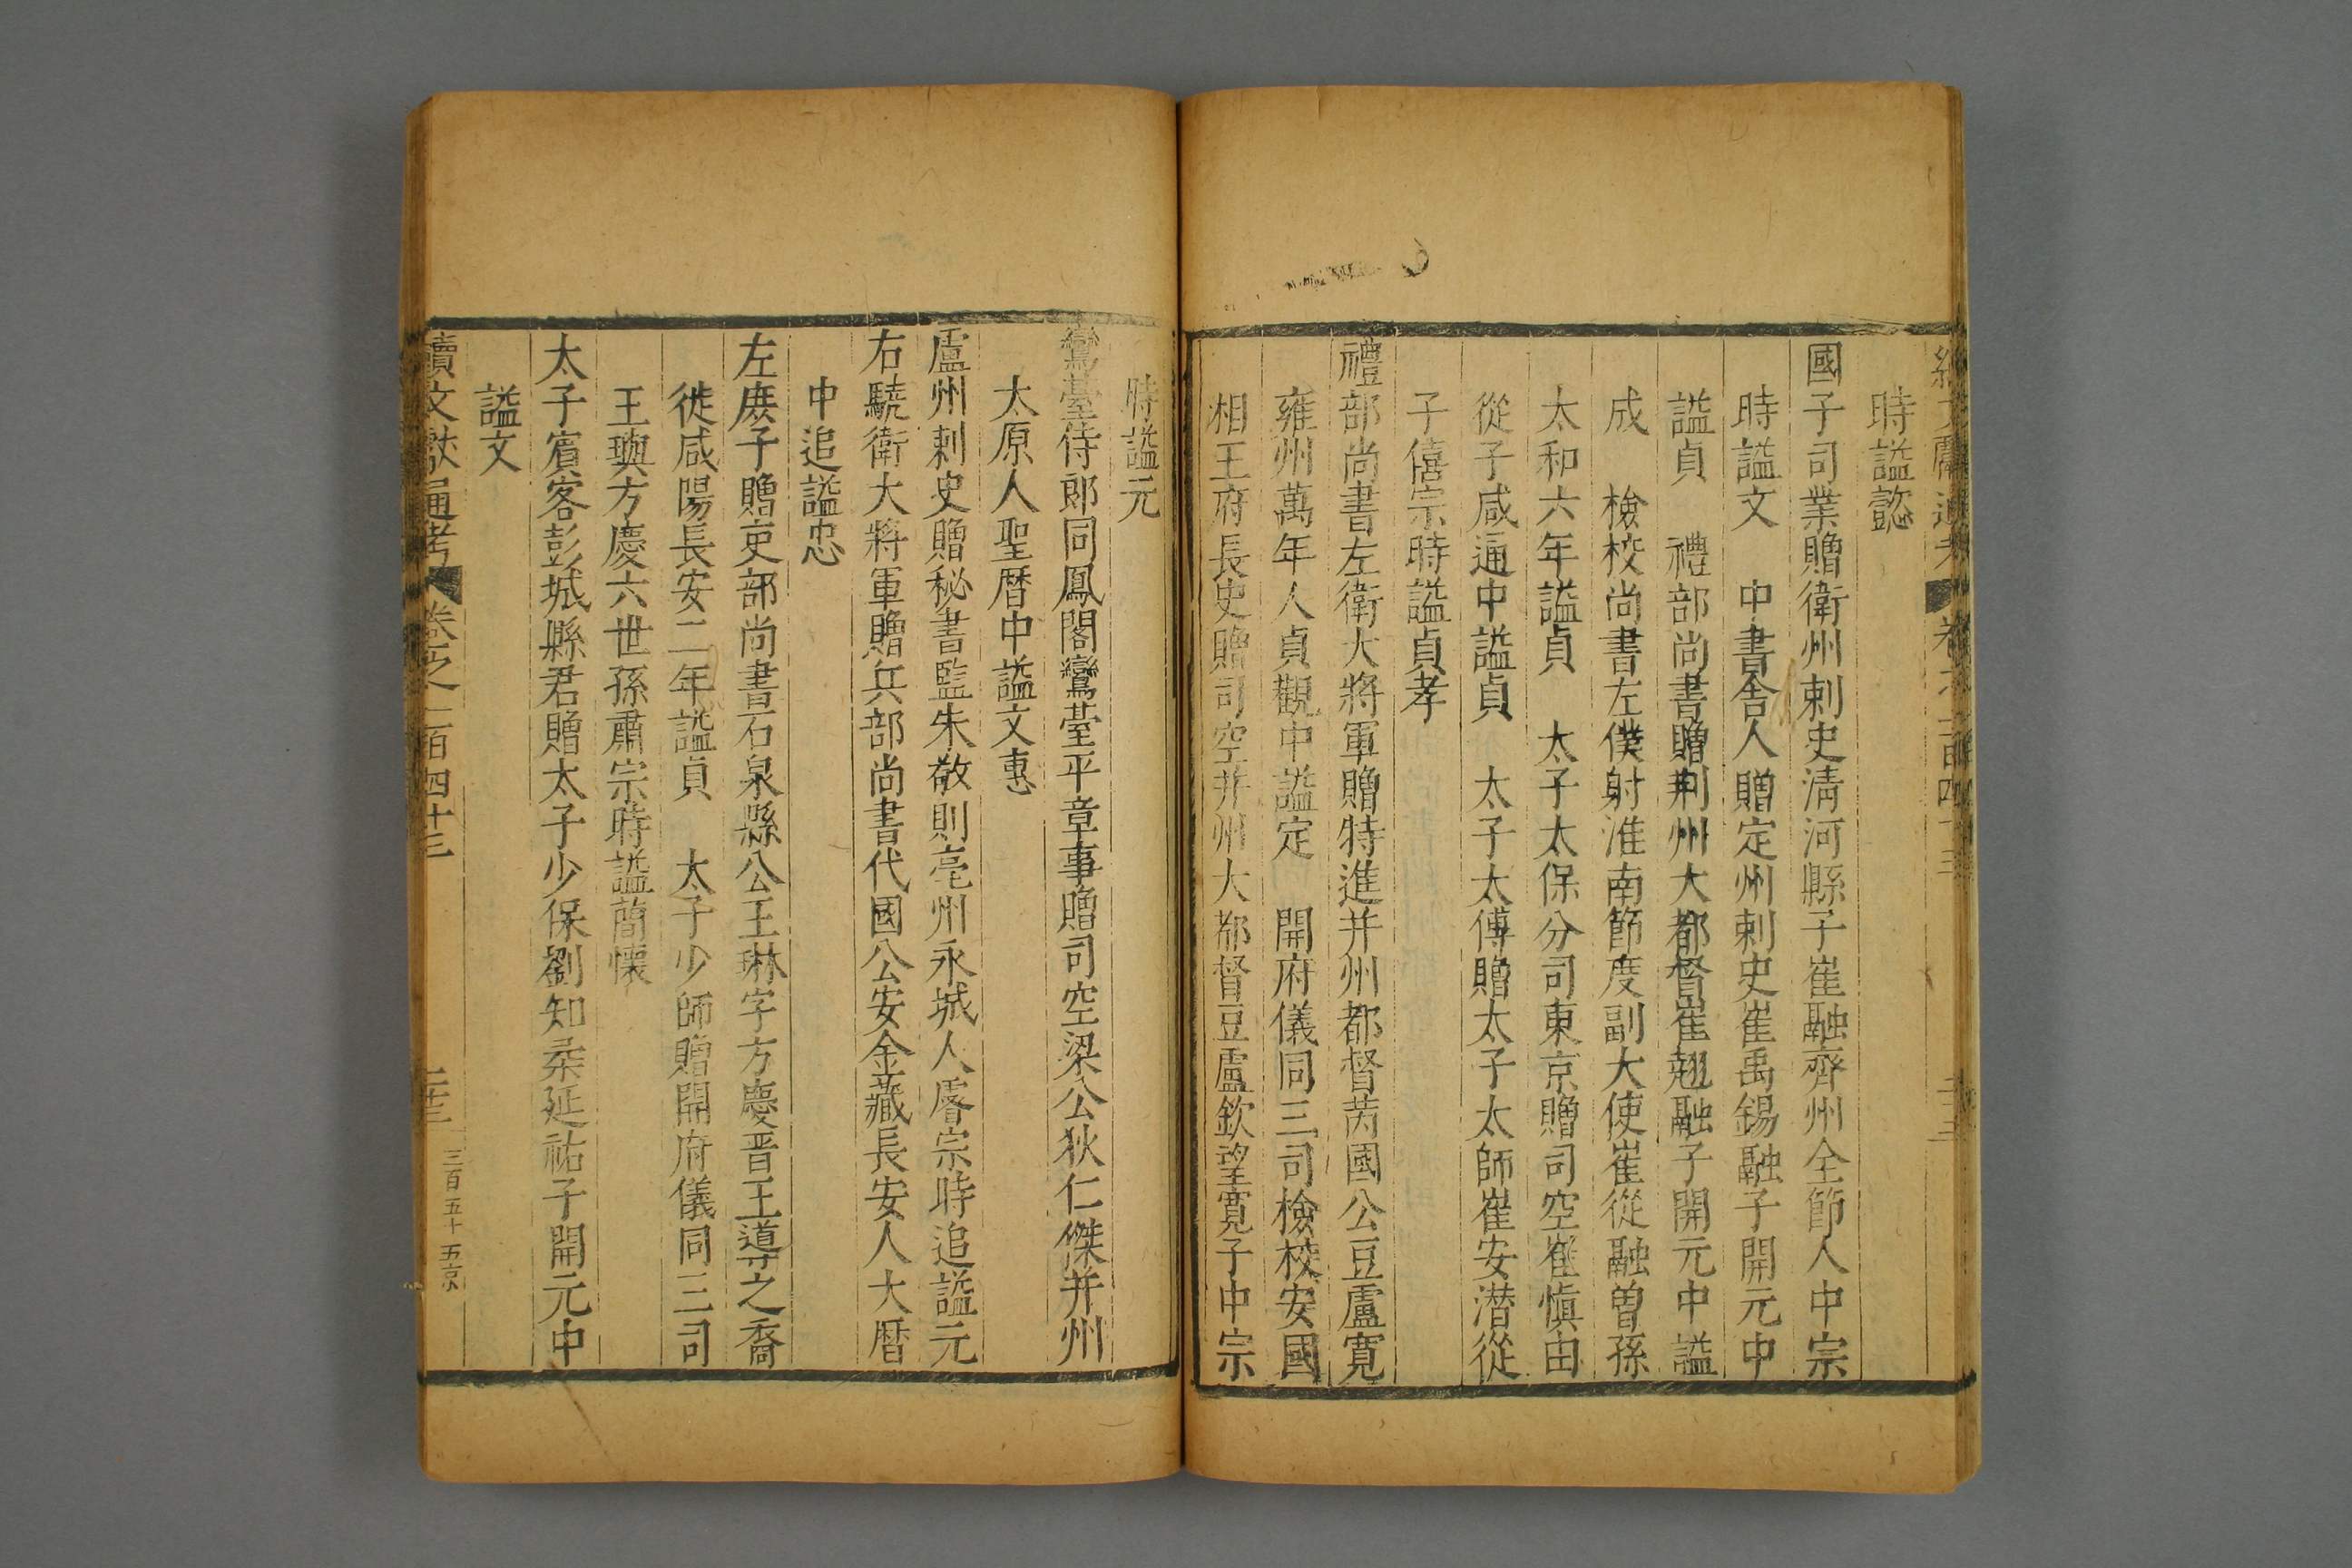 時謚懿
國子司業贈衛州刺史清河縣子崔融齊州全節人中宗
時謚文　中書舍人贈定州刺史崔禹錫融子開元中
謚貞　禮部尚書贈荆州大都督崔翹融子開元中謚
成　檢校尚書左僕射淮南節度副大使崔從融曾孫
太和六年謚貞　太子太保分司東京贈司空崔慎由
從子咸通中謚貞　太子太傅贈太子太師崔安潜從
子僖宗時謚貞孝
禮部尚書左衛大將軍贈特進并州都督芮國公豆盧寛
雍州萬年人貞觀中謚定　開府儀同三司檢校安國
相王府長史贈司空并州大都督豆盧欽望寛子中宗
時謚元
鸞臺侍郎同鳳閣鸞臺平章事贈司空梁公狄仁傑并州
太原人聖暦中謚文惠
盧州刺史贈秘書監朱敬則亳州永城人睿宗時追謚元
右驍衛大將軍贈兵部尚書代國公安金藏長安人大暦
中追謚忠
左庶子贈吏部尚書石泉縣公王綝字方慶晋王導之裔
徙咸陽長安二年謚貞　太子少師贈開府儀同三司
王璵方慶六世孫肅宗時謚簡懷
太子賓客彭城縣君贈太子少保劉知柔延祐子開元中
謚文
續文獻通考　卷之一百四十三　二十三　三百五十五京